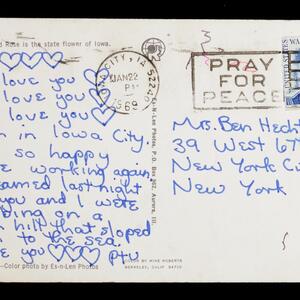 d Rose is the state flower of Iowa.
love you
love you
love you
in Iowa City
so happy
working again.
last night
you and I were
on a
hill that sloped
to the sea.
you
—Color photo by Es-n-Len Photos
Es-n-Len Photos, P.O. Box 202, Aurora, Ill
COLOR BY MIKE ROBERTS
BERKELEY, CALIF 94710
CITY, IA
52240
JAN 22
PM
1969
PRAY
FOR
PEACE
UNITED STATES
Mrs. Ben Hecht
39 West 67
New York Ci
New York